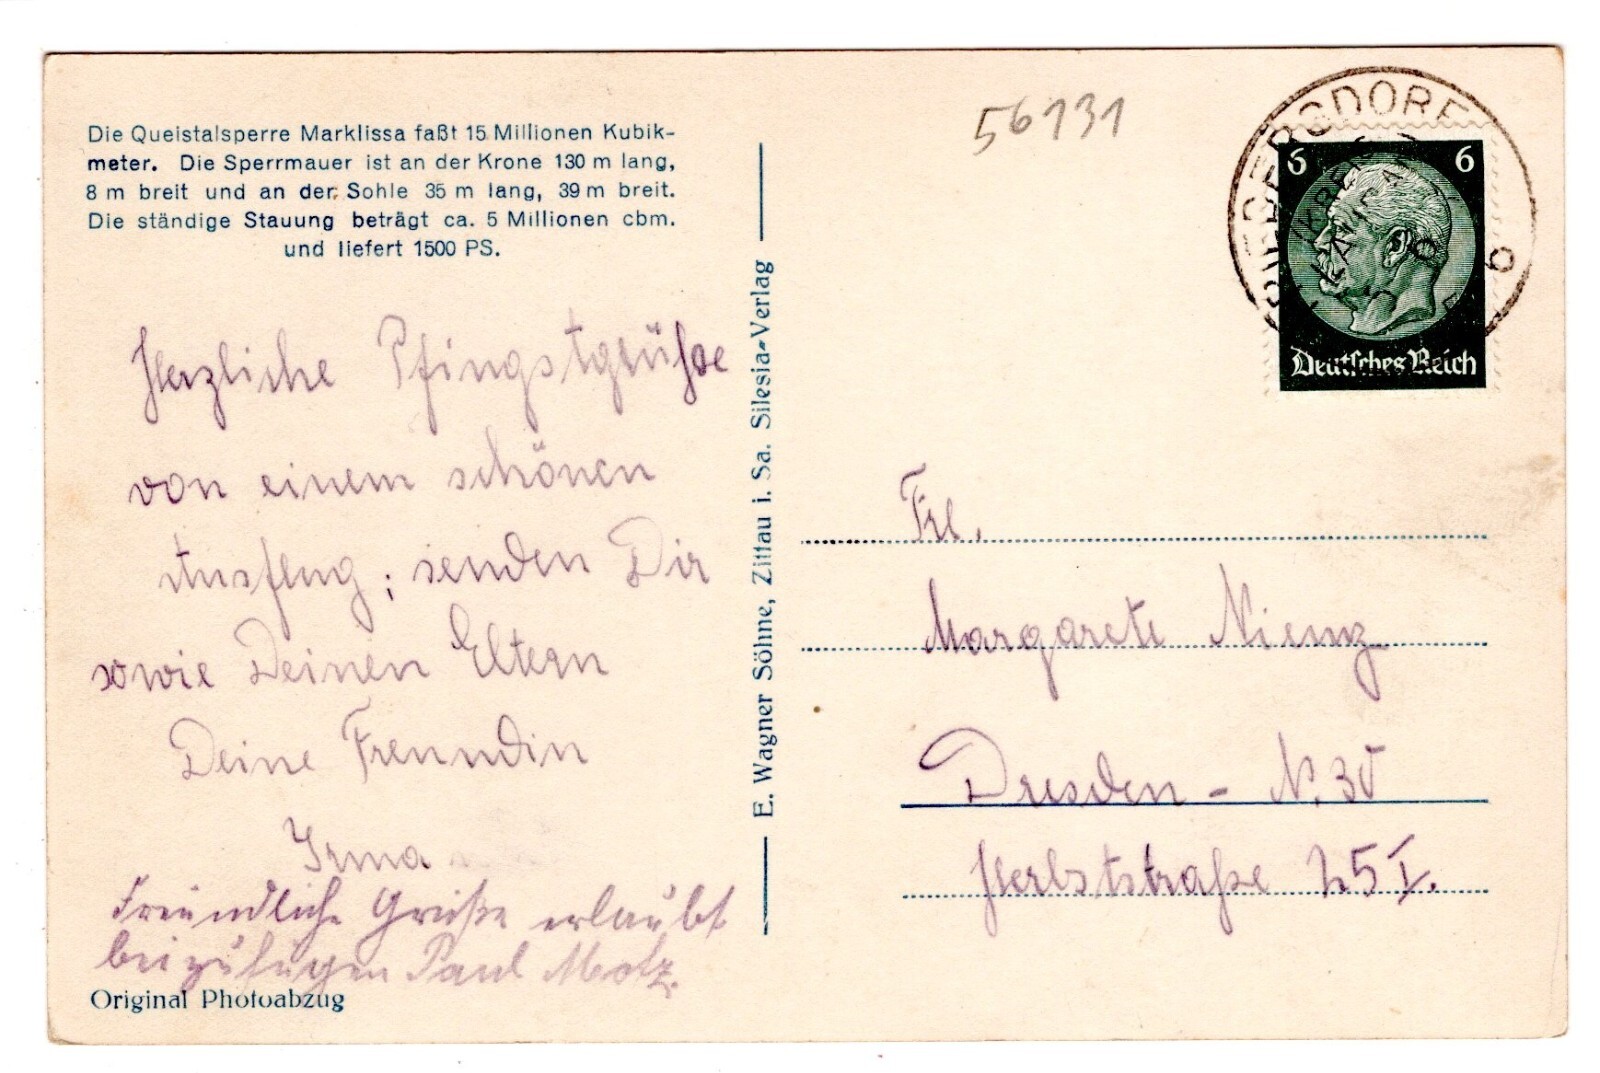 Die Queistalsperre Marklissa faßt 15 Millionen Kubik-
meter. Die Sperrmauer ist an der Krone 130 m lang,
8 m breit und an der Sohle 35 m lang, 39 m breit.
Die ständige Stauung beträgt ca. 5 Millionen cbm.
und liefert 1500 PS.
Herzliche Pfingstgrüße
von einem schönen
Ausflug; senden Dir
sowie Deinen Eltern
Deine Freundin
Irma
Freundliche Grüße erlaubt
beizufügen Paul Motz.
Original Photoabzug
E. Wagner Söhne, Zittau i. Sa. Silesia-Verlag
56131
6 6
Deutsches Reich
Frl.
Margarete Nienz
Dresden - N. 30
Herbststraße 25 I.